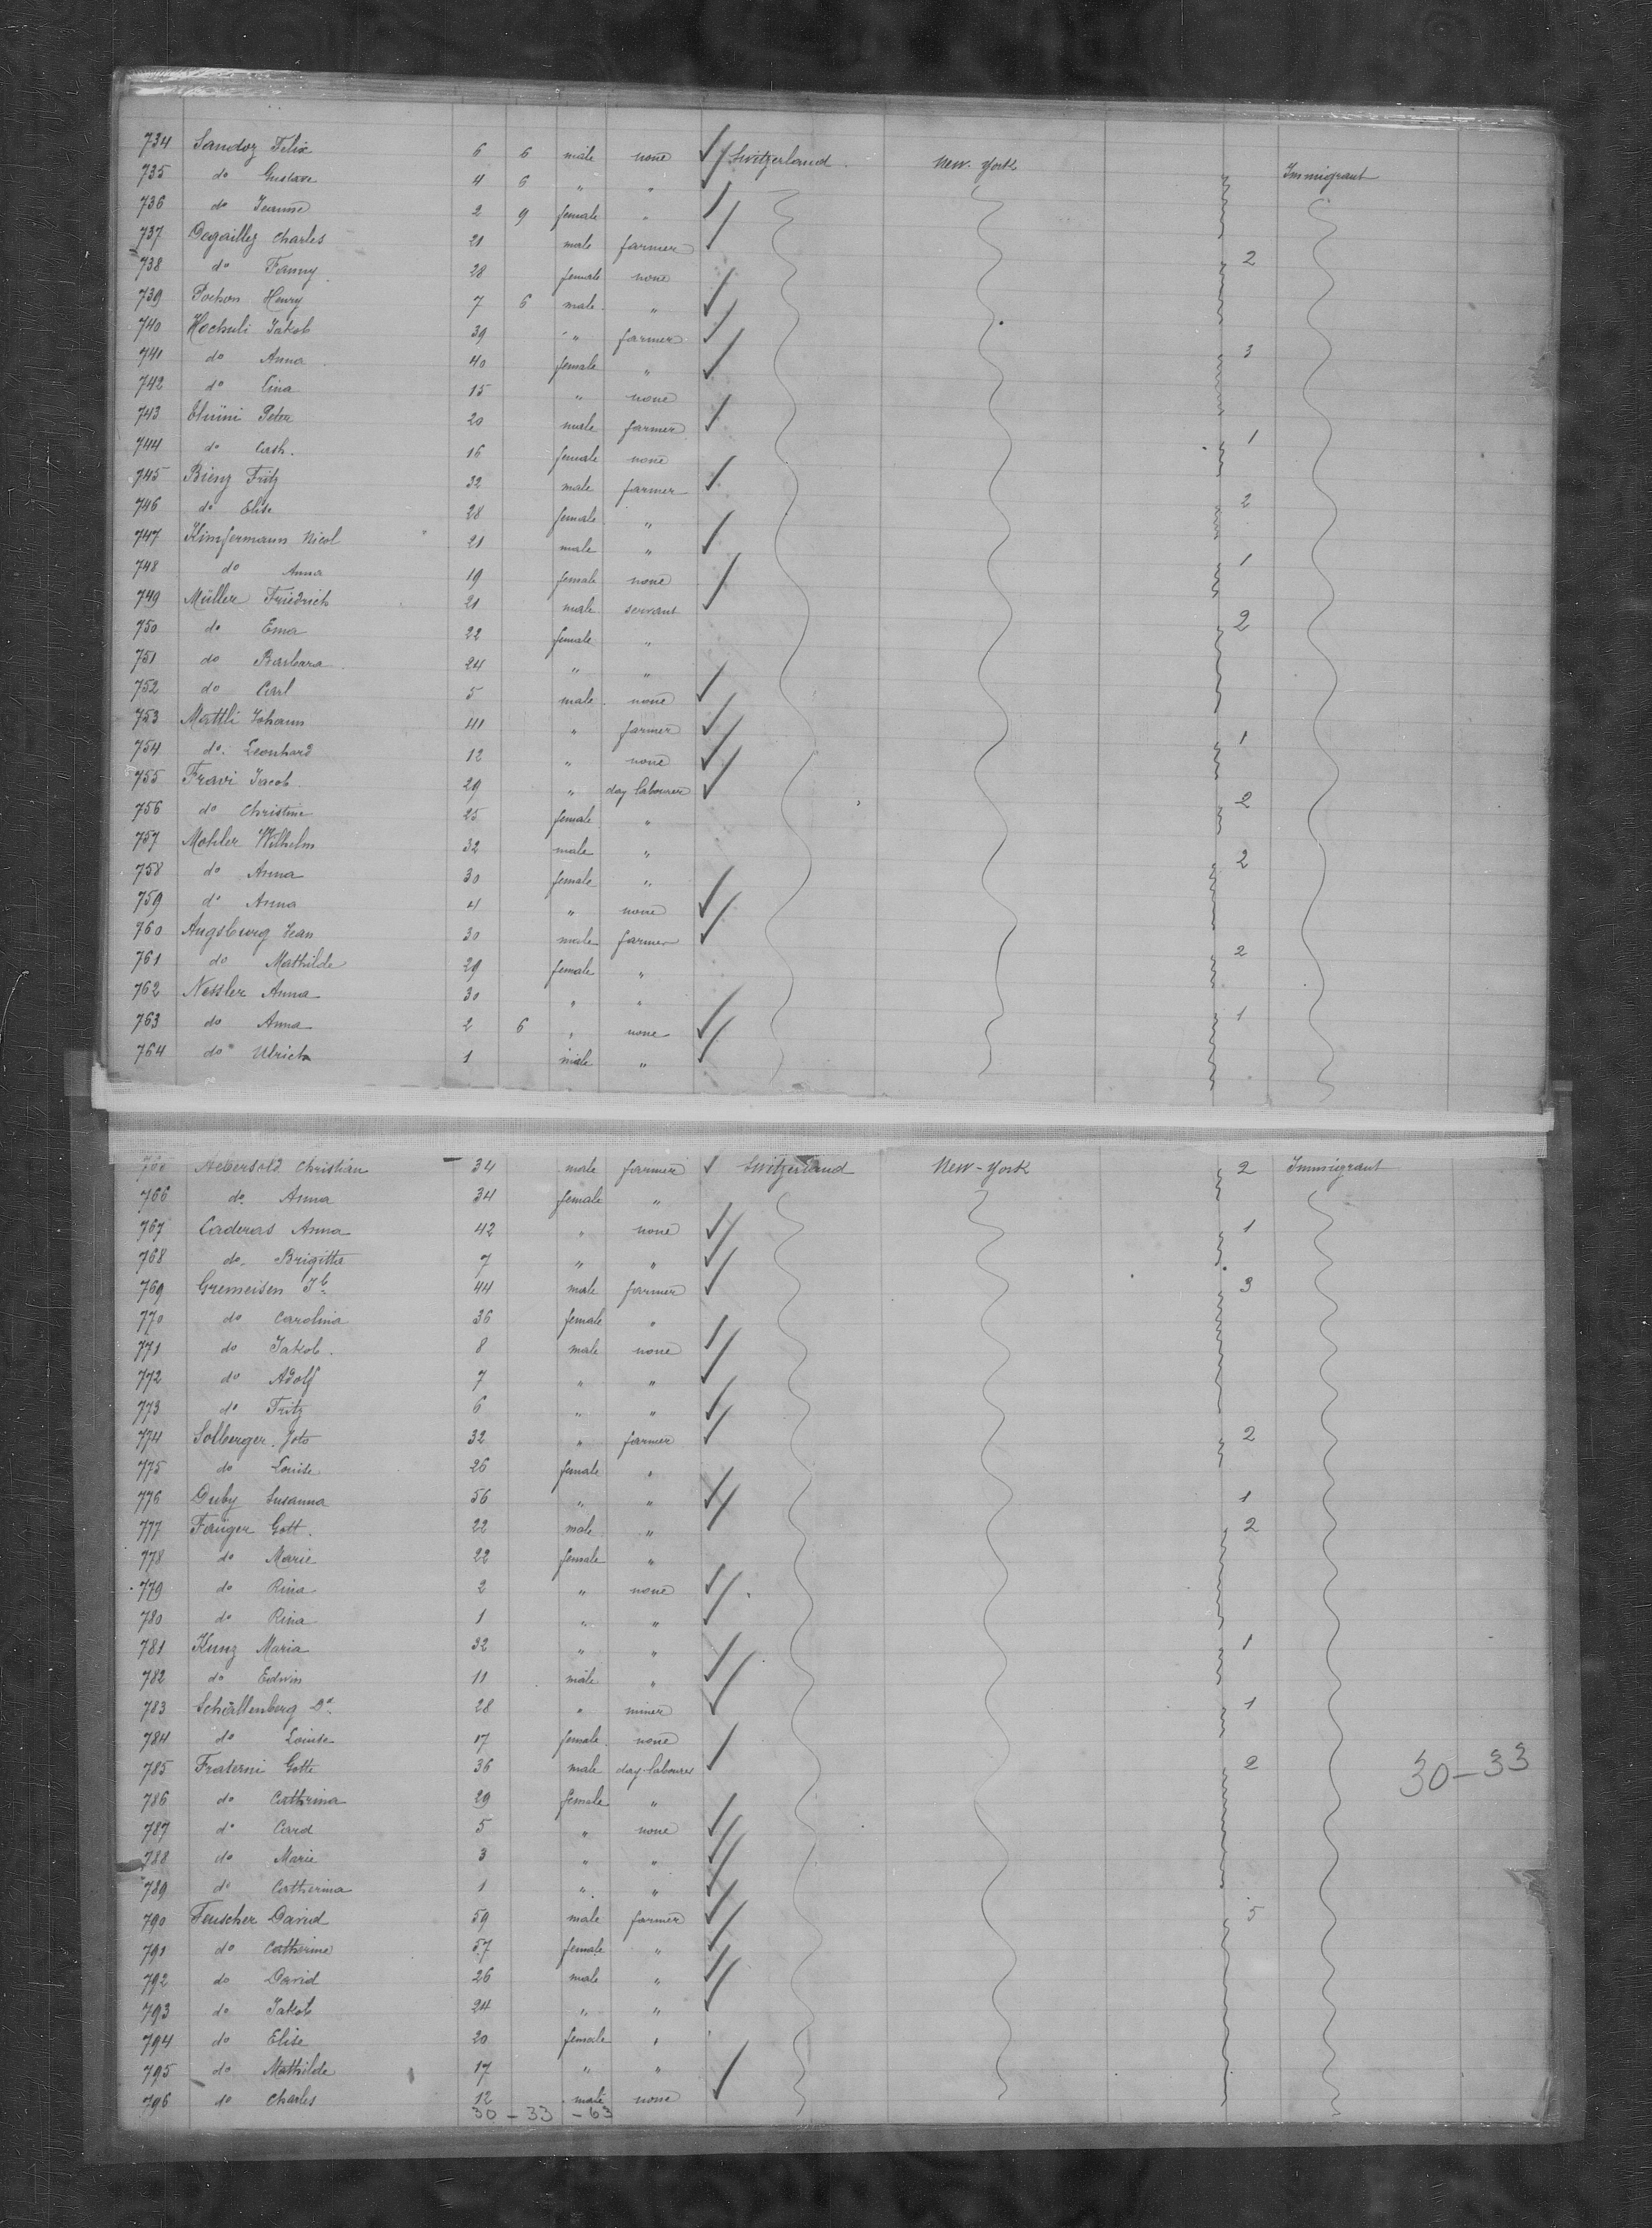 734 Sandoz Felix 6 6 male none Switzerland New-York Immigrant
735 do Gustave 4 6 " "
736 do Jeanne 2 9 female "
737 Degaillez Charles 21 male farmer 2
738 do Fanny 28 female none
739 Pochon Henry 7 6 male "
740 Hochuli Jakob 39 " farmer 3
741 do Anna 40 female "
742 do Lina 15 " none
743 Peter 20 male farmer 1
744 do Cath. 16 female none
745 Bienz Fritz 32 male farmer 2
746 do Elise 28 female "
747 Nicol 21 male " 1
748 do Anna 19 female none
749 Müller Friedrich 21 male servant 2
750 do Ema 22 female "
751 do Barbara 24 " "
752 do Carl 5 male none
753 Mattli Johann 41 " farmer 1
754 do. Leonhard 12 " none
755 Fravi Jacob 29 " day labourer 2
756 do Christine 25 female "
757 Mohler Wilhelm 32 male " 2
758 do Anna 30 female "
759 do Anna 4 " none
760 Augsburg Jean 30 male farmer 2
761 do Mathilde 29 female "
762 Nessler Anna 30 " " 1
763 do Anna 2 6 " none
764 do Ulrich 1 male "
765 Aebersold Christian 34 male farmer Switzerland New-York 2 Immigrant
766 do Anna 34 female "
767 Caderas Anna 42 " none 1
768 do. Brigitta 7 " "
769 Gremeisen Jb 44 male farmer 3
770 do Carolina 36 female "
771 do Jakob. 8 male none
772 do Adolf 7 " "
773 do Fritz 6 " "
774 Solberger 32 " farmer 2
775 do Louise 26 female "
776 Duby Susanna 56 " " 1
777 Gott. 22 male " 2
778 do Marie 22 female "
779 do Rina 2 " none
780 do Rina 1 " "
781 Kunz Maria 32 " " 1
782 do Edwin 11 male "
783 Schällenberg Dd 28 " miner 1
784 do Louise 17 female none
785 Fraterni Gotte 36 male day labourer 2 30-33
786 do Catherina 29 female "
787 do Card 5 " none
788 do Marie 3 " "
789 do Catherina 1 " "
790 Feuscher David 59 male farmer 5
791 do Catherine 57 female "
792 do David 26 male "
793 do Jakob 24 " "
794 do Elise 20 female "
795 do Mathilde 17 " "
796 do Charles 12 male none
30-33-63